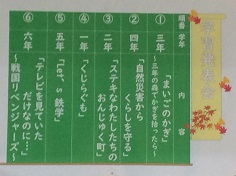 順番 学年 内容
① 三年 「まいごのかぎ」
～三年の森でかぎを拾ったら～
② 四年 「自然災害から
くらしを守る」
③ 二年 「ステキなわたしたちの
おんじゅく町」
④ 一年 「くじらぐも」
⑤ 五年 「Let's 鉄学」
⑥ 六年 「テレビを見ていた
だけなのに…」
～戦国リベンジャーズ～